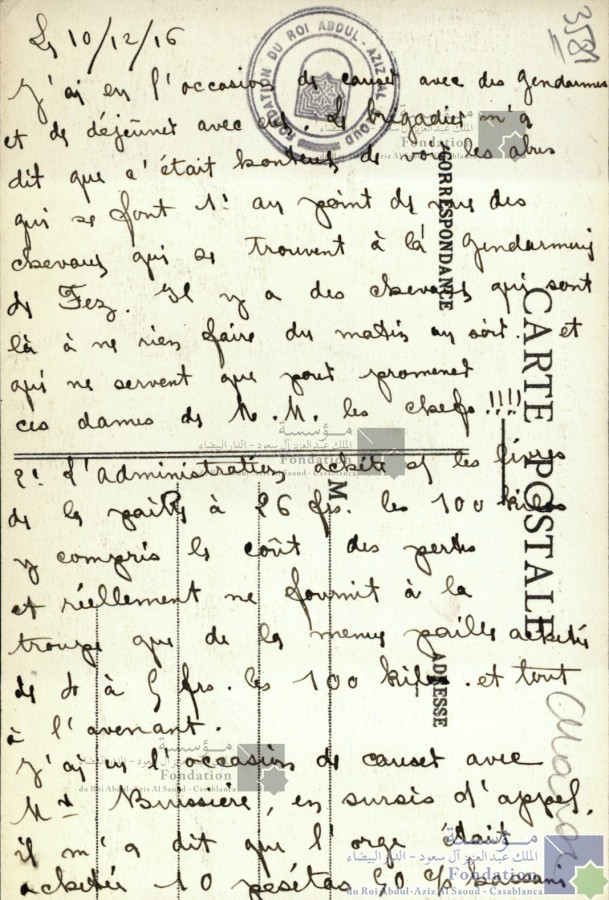 Le 10/12/16
3581
FONDATION DU ROI ABDUL-AZIZ AL SAOUD
J'ai eu l'occasion de causer avec des gendarmes
et de déjeuner avec eux. Le brigadier m'a
dit que c'était honteux de voir les abus
qui se font 1: au point de vue des
chevaux qui se trouvent à la gendarmerie
de Fez. Il y a des chevaux qui sont
là à ne rien faire du matin au soir. et
qui ne servent que pour promener
ces dames de M.M. les chefs !!!!
2: L'administration achète les livres
de la paille à 26 frs. les 100 kilos
y compris le coût des pertes
et réellement ne fournit à la
troupe que de la menue paille achetée
de 4 à 5 frs. les 100 kilos. et tout
à l'avenant.
J'ai eu l'occasion de causer avec
Mr Buissière, en sursis d'appel,
il m'a dit que l'orge était
achetée 10 pesetas 50 c/o hassani
CORRESPONDANCE
CARTE POSTALE
M
ADRESSE
Maroc
مؤسسة
الملك عبد العزيز آل سعود - الدار البيضاء
Fondation
du Roi Abdul-Aziz Al Saoud - Casablanca